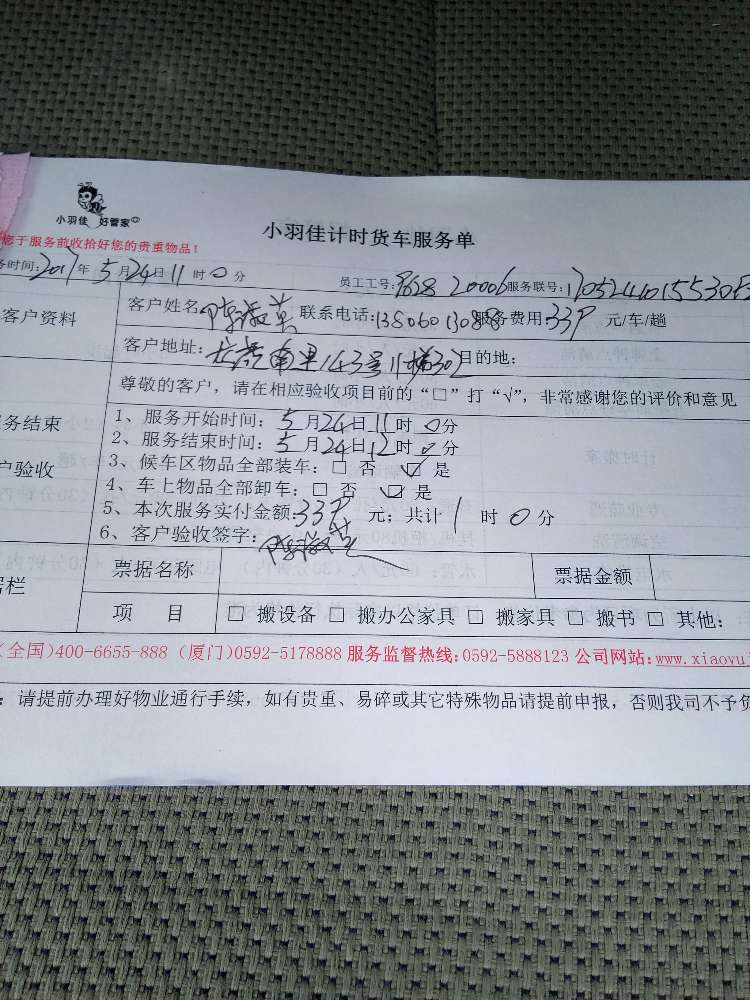 小羽佳 好管家
您于服务前收拾好您的贵重物品！
小羽佳计时货车服务单
务时间:2017年5月24日11时0分 员工工号: 服务联号:
客户资料
客户姓名 联系电话:13806013088 服务费用:33P 元/车/趟
客户地址: 南里143号11梯302 目的地:
尊敬的客户，请在相应验收项目前的“□”打“√”，非常感谢您的评价和意见
务结束
户验收
1、服务开始时间：5月24日11时0分
2、服务结束时间：5月24日12时0分
3、候车区物品全部装车：□ 否 ☑ 是
4、车上物品全部卸车：□ 否 ☑ 是
5、本次服务实付金额:33P 元；共计1时0分
6、客户验收签字：
据栏
票据名称 票据金额
项 目 □ 搬设备 □ 搬办公家具 □ 搬家具 □ 搬书 □ 其他:
(全国)400-6655-888 (厦门)0592-5178888 服务监督热线:0592-5888123 公司网站:www.xiaoyu
：请提前办理好物业通行手续，如有贵重、易碎或其它特殊物品请提前申报，否则我司不予负